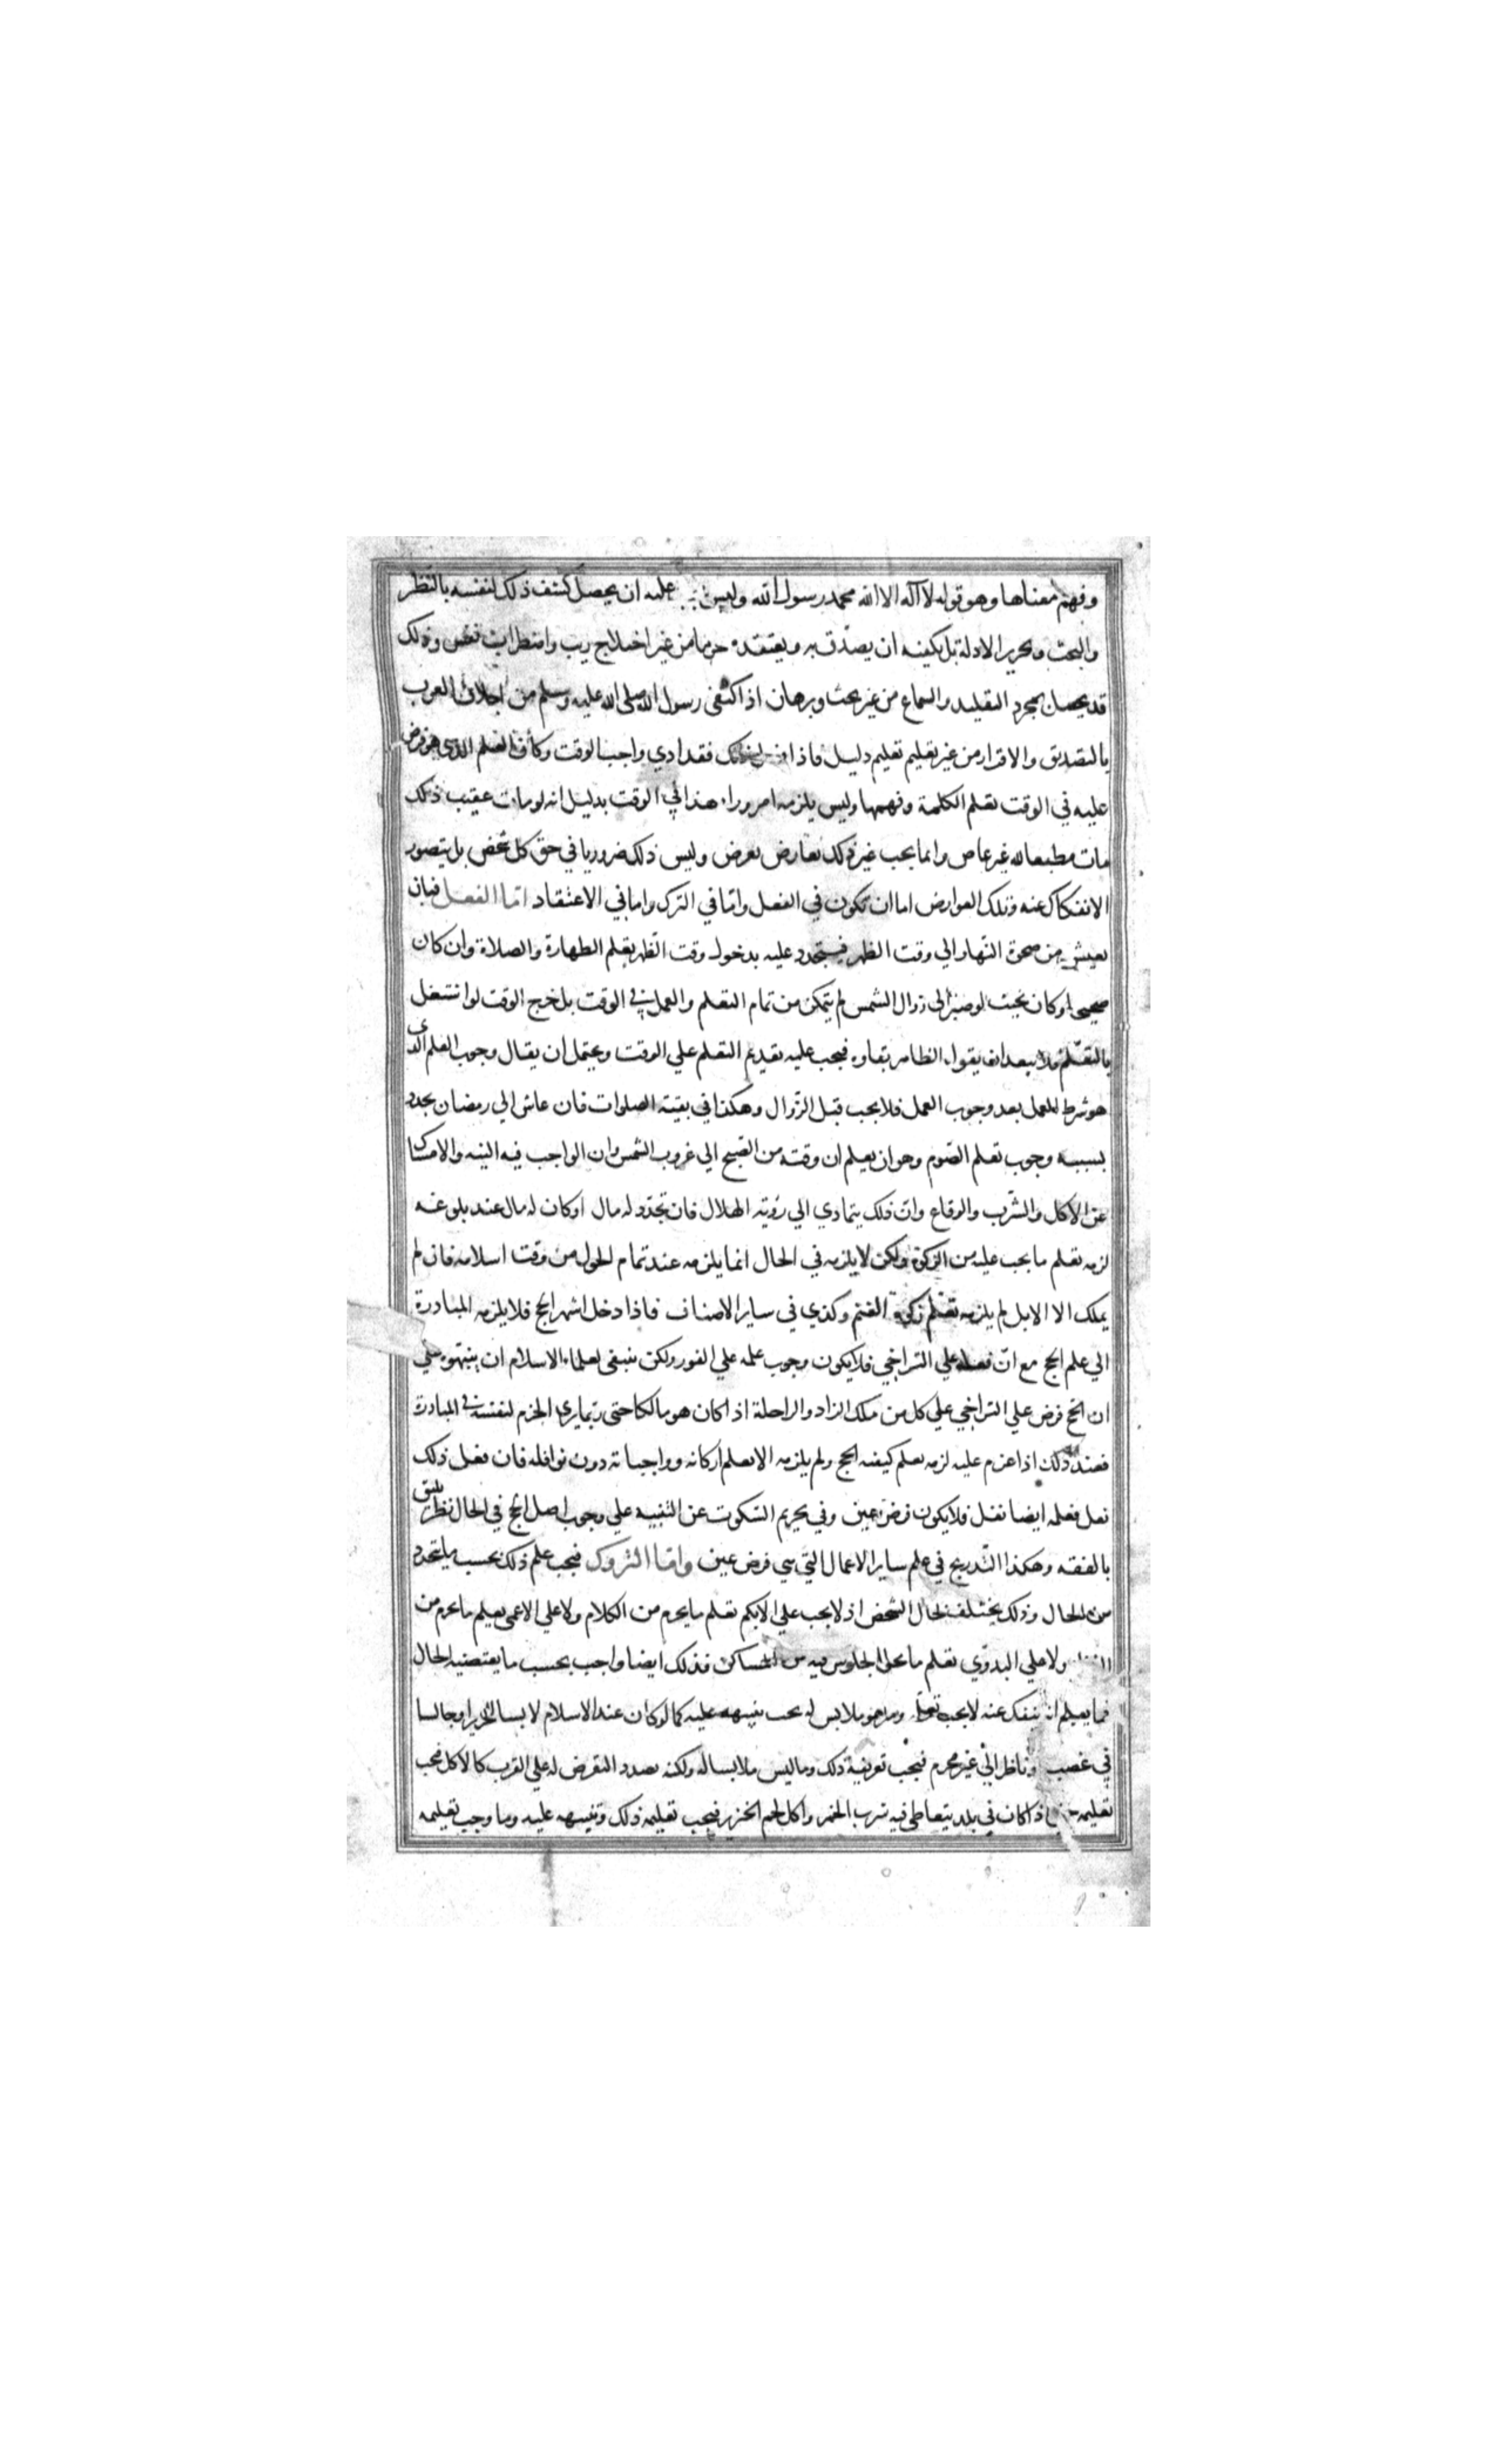 وفهم معناها وهو قوله لا اله الا الله محمد رسول الله وليس عليه ان يحصل كشف ذلك لنفسه بالنظر
والبحث وتحرير الادلة بل يكفيه ان يصدق به ويعتقده جزما من غير اختلاج ريب واضطراب نفس وذلك
قد يحصل بمجرد التقليد والسماع من غير بحث وبرهان اذ اكتفى رسول الله صلى الله عليه وسلم من اجلاف العرب
بالتصديق والاقرار من غير تعليم تعليم دليل فاذا ذلك فقد ادي واجب الوقت وكان العلم الذي هو فرض
عليه في الوقت تعلم الكلمة وفهمها وليس يلزمه امر وراء هذا في الوقت بدليل انه لو مات عقيب ذلك
مات مطيعا لله غير عاص وانما يجب غير ذلك بعارض يعرض وليس ذلك ضروريا في حق كل شخص بل يتصور
الانفكاك عنه وتلك العوارض اما ان تكون في الفعل واما في الترك واما في الاعتقاد اما الفعل فبان
يعيش من ضحوة النهار الي وقت الظهر فيتجدد عليه بدخول وقت الظهر تعلم الطهارة والصلاة وان كان
صحيحا وكان بحيث لو صبر الى زوال الشمس لم يتمكن من تمام التعلم والعمل في الوقت بل خرج الوقت لو اشتغل
بالتعلم فلا يبعد ان يقول الظاهر بقاوه فيجب عليه تقديم التعلم علي الوقت ويحتمل ان يقال وجوب العلم الذي
هو شرط العمل بعد وجوب العمل فلا يجب قبل الزوال وهكذا في بقية الصلوات فان عاش الي رمضان تجدد
بسببه وجوب تعلم الصوم وهو ان يعلم ان وقته من الصبح الي غروب الشمس وان الواجب فيه النيه والامساك
عن الاكل والشرب والوقاع وان ذلك يتمادي الي رؤية الهلال فان تجدد له مال او كان له مال عند بلوغه
لزمه تعلم ما يجب عليه من الزكوة ولكن لا يلزمه في الحال انما يلزمه عند تمام الحول من وقت اسلامه فان لم
يملك الا الابل لم يلزمه تعلم زكوة الغنم وكذي في ساير الاصناف فاذا دخل اشهر الحج فلا يلزمه المبادرة
الي علم الحج مع ان فعله علي التراخي فلا يكون وجوب علمه علي الفور ولكن ينبغي لعلماء الاسلام ان ينبهوه علي
ان الحج فرض علي التراخي علي كل من ملك الزاد والراحلة اذا كان هو مالكا حتى ربما يري الحزم لنفسه في المبادرة
فعند ذلك اذا عزم عليه لزمه تعلم كيفيه الحج ولم يلزمه الا تعلم اركانه وواجباته دون نوافله فان فعل ذلك
نفل فعلمه ايضا نفل فلا يكون فرض عين وفي تحريم السكوت عن التنبيه علي وجوب اصل الحج في الحال نظر يليق
بالفقه وهكذا التدريج في علم ساير الاعمال التي هي فرض عين واما التروك فيجب علم ذلك بحسب ما يتجدد
من الحال وذلك يختلف بحال الشخص اذ لا يجب علي الابكم تعلم ما يحرم من الكلام ولا علي الاعمى تعلم ما يحرم من
ولا علي البدوي تعلم ما يحل الجلوس فيه من المساكن فذلك ايضا واجب بحسب ما يقتضيه الحال
فما يعلم انه ينفك عنه لا يجب تعلمه وما هو ملابس له يجب تنبيهه عليه كما لو كان عند الاسلام لابسا للحرير او جالسا
في غصب او ناظرا الي غير محرم فيجب تعريفه ذلك وما ليس ملابسا له ولكنه بصدد التعرض له علي القرب كالاكل فيجب
تعليمه اذا كان في بلد يتعاطى فيه شرب الخمر واكل لحم الخنزير فيجب تعليمه ذلك وتنبيهه عليه وما وجب تعليمه